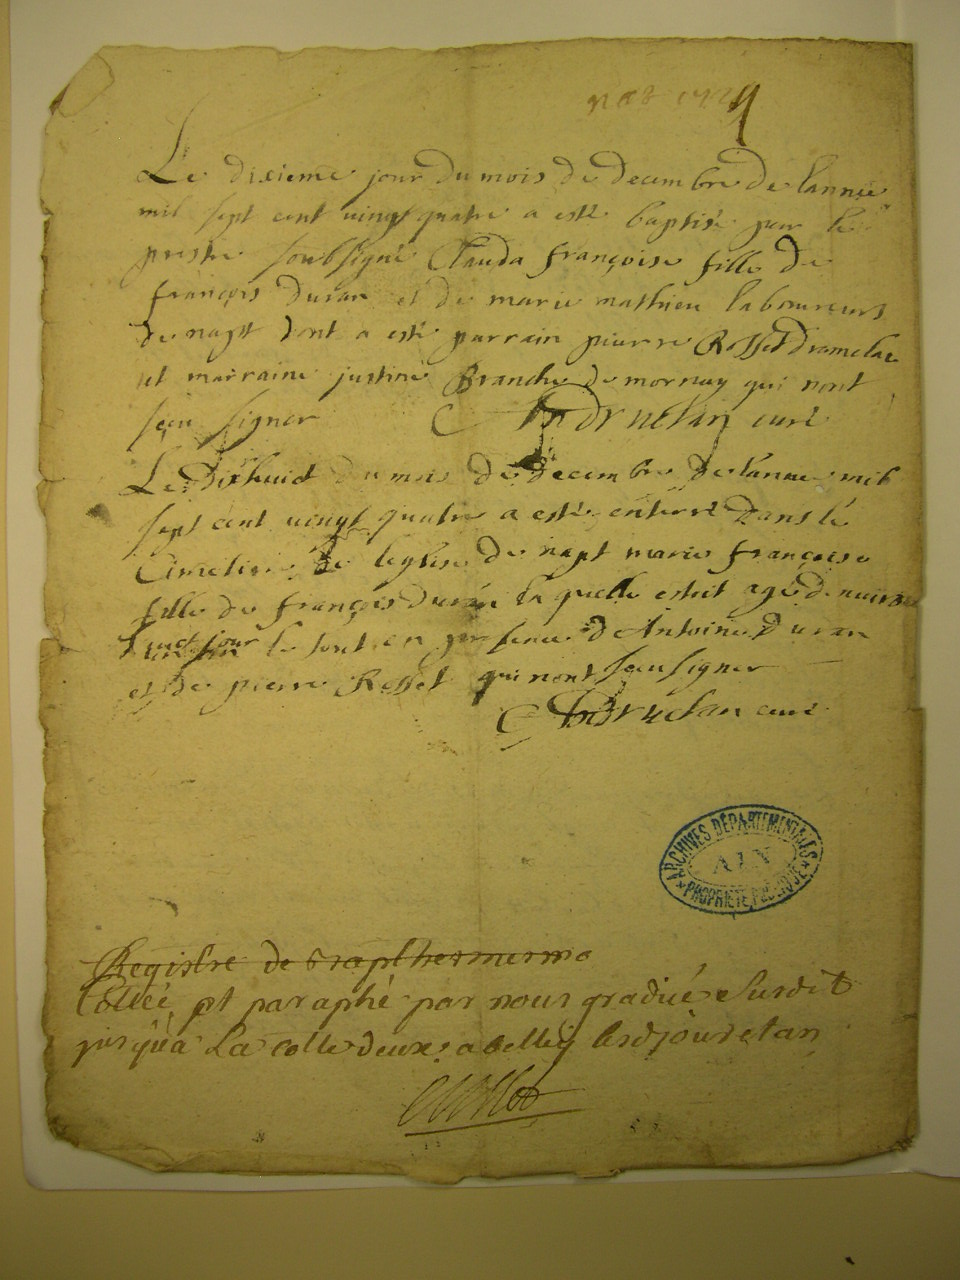 Le dixieme jour du mois de decembre de lannee
mil sept cent vingt quatre a esté baptisé par le
prestre soubsigné Clauda françoise fille de
françois duran et de marie mathieu laboureurs
de napt dont a esté parrain pierre Rosset dramelac
et marraine justine Branche de mornay qui nont
sceu signer C Andruetan curé
Le dixhuict du mois de decembre de lannee mil
sept cent vingt quatre a esté enterré dans le
Cimetiere de leglise de napt marie françoise
fille de françois duran la quelle estoit agé de
jour le tout en presence d'Antoine duran
et de pierre Rosset qui nont sceu signer
C Andruetan curé
ARCHIVES DÉPARTEMENTALES
AIN
PROPRIÉTÉ PUBLIQUE
Registre de
Cottée et paraphé par nous gradué Susdit
jusqua La cotte deux a belley les jour et an